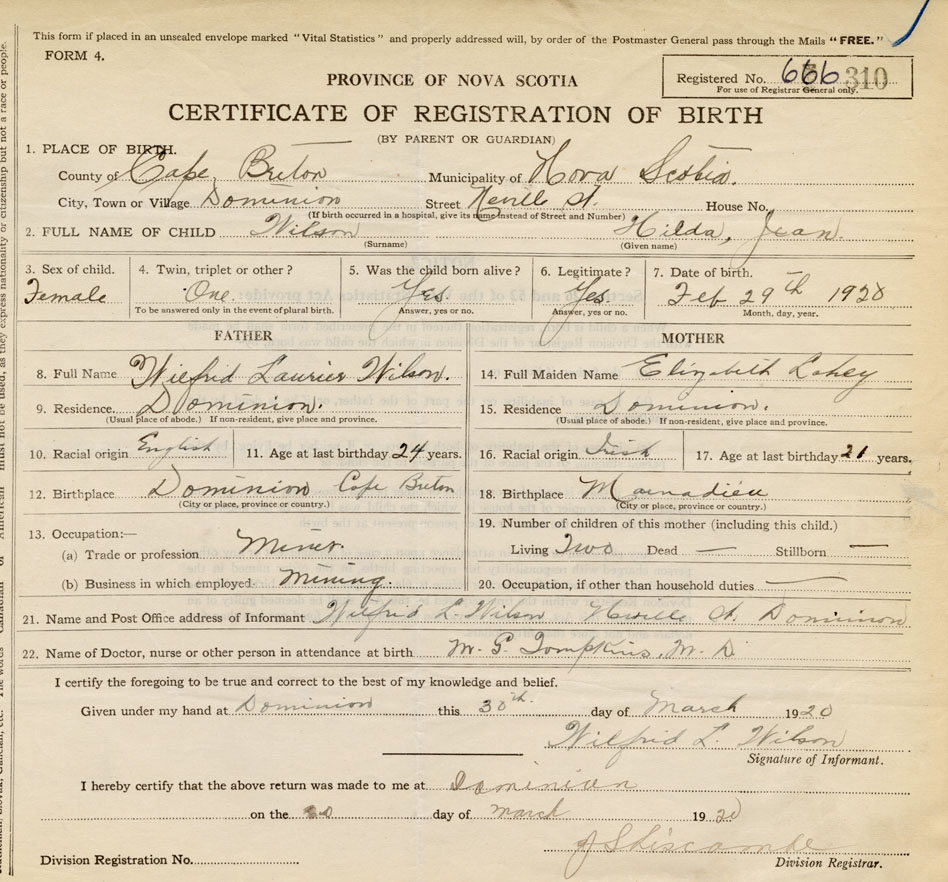 This form if placed in an unsealed envelope marked "Vital Statistics" and properly addressed will, by order of the Postmaster General pass through the Mails "FREE."
FORM 4.
PROVINCE OF NOVA SCOTIA
Registered No. 666 310
For use of Registrar General only.
CERTIFICATE OF REGISTRATION OF BIRTH
(BY PARENT OR GUARDIAN)
1. PLACE OF BIRTH.
County of Cape Breton Municipality of Nova Scotia.
City, Town or Village Dominion Street Neville St. House No.
(If birth occurred in a hospital, give its name instead of Street and Number)
2. FULL NAME OF CHILD Wilson Hilda, Jean.
(Surname) (Given name)
3. Sex of child. 4. Twin, triplet or other? 5. Was the child born alive? 6. Legitimate? 7. Date of birth.
Female One. Yes. Yes. Feb 29th 1920
To be answered only in the event of plural birth. Answer, yes or no. Answer, yes or no. Month, day, year.
FATHER MOTHER
8. Full Name Wilfrid Laurier Wilson. 14. Full Maiden Name Elizabeth Lahey
9. Residence. Dominion. 15. Residence Dominion.
(Usual place of abode.) If non-resident, give place and province. (Usual place of abode.) If non-resident, give place and province.
10. Racial origin English 11. Age at last birthday 24 years. 16. Racial origin Irish 17. Age at last birthday 21 years.
12. Birthplace Dominion Cape Breton 18. Birthplace Mainadieu
(City or place, province or country.) (City or place, province or country.)
13. Occupation:— 19. Number of children of this mother (including this child.)
(a) Trade or profession Miner. Living Two Dead — Stillborn —
(b) Business in which employed. Mining. 20. Occupation, if other than household duties —
21. Name and Post Office address of Informant Wilfrid L. Wilson Neville St. Dominion
22. Name of Doctor, nurse or other person in attendance at birth. M. G. Tompkins, M. D.
I certify the foregoing to be true and correct to the best of my knowledge and belief.
Given under my hand at Dominion this 30th day of March 1920
Wilfrid L. Wilson
Signature of Informant.
I hereby certify that the above return was made to me at Dominion
on the 30 day of march 1920
Division Registration No. Division Registrar.